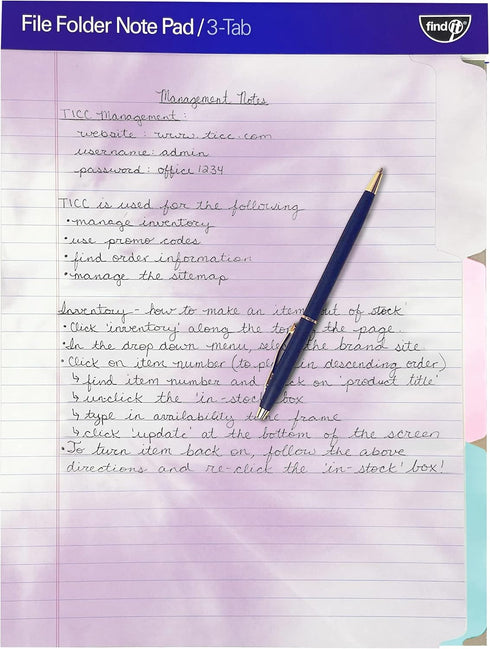 File Folder Note Pad / 3-Tab
find it®
Management Notes
TICC Management:
website: www.ticc.com
username: admin
password: office 1234
TICC is used for the following
• manage inventory
• use promo codes
• find order information
• manage the sitemap
Inventory - how to make an item out of stock'
• Click 'inventory' along the to the page.
• In the drop down menu, sele the brand site
• Click on item number (to p in descending order)
↳ find item number and ck on 'product title'
↳ unclick the 'in-stock' box
↳ type in availability time frame
↳ click 'update' at the bottom of the screen
• To turn item back on, follow the above
directions and re-click the 'in-stock' box!